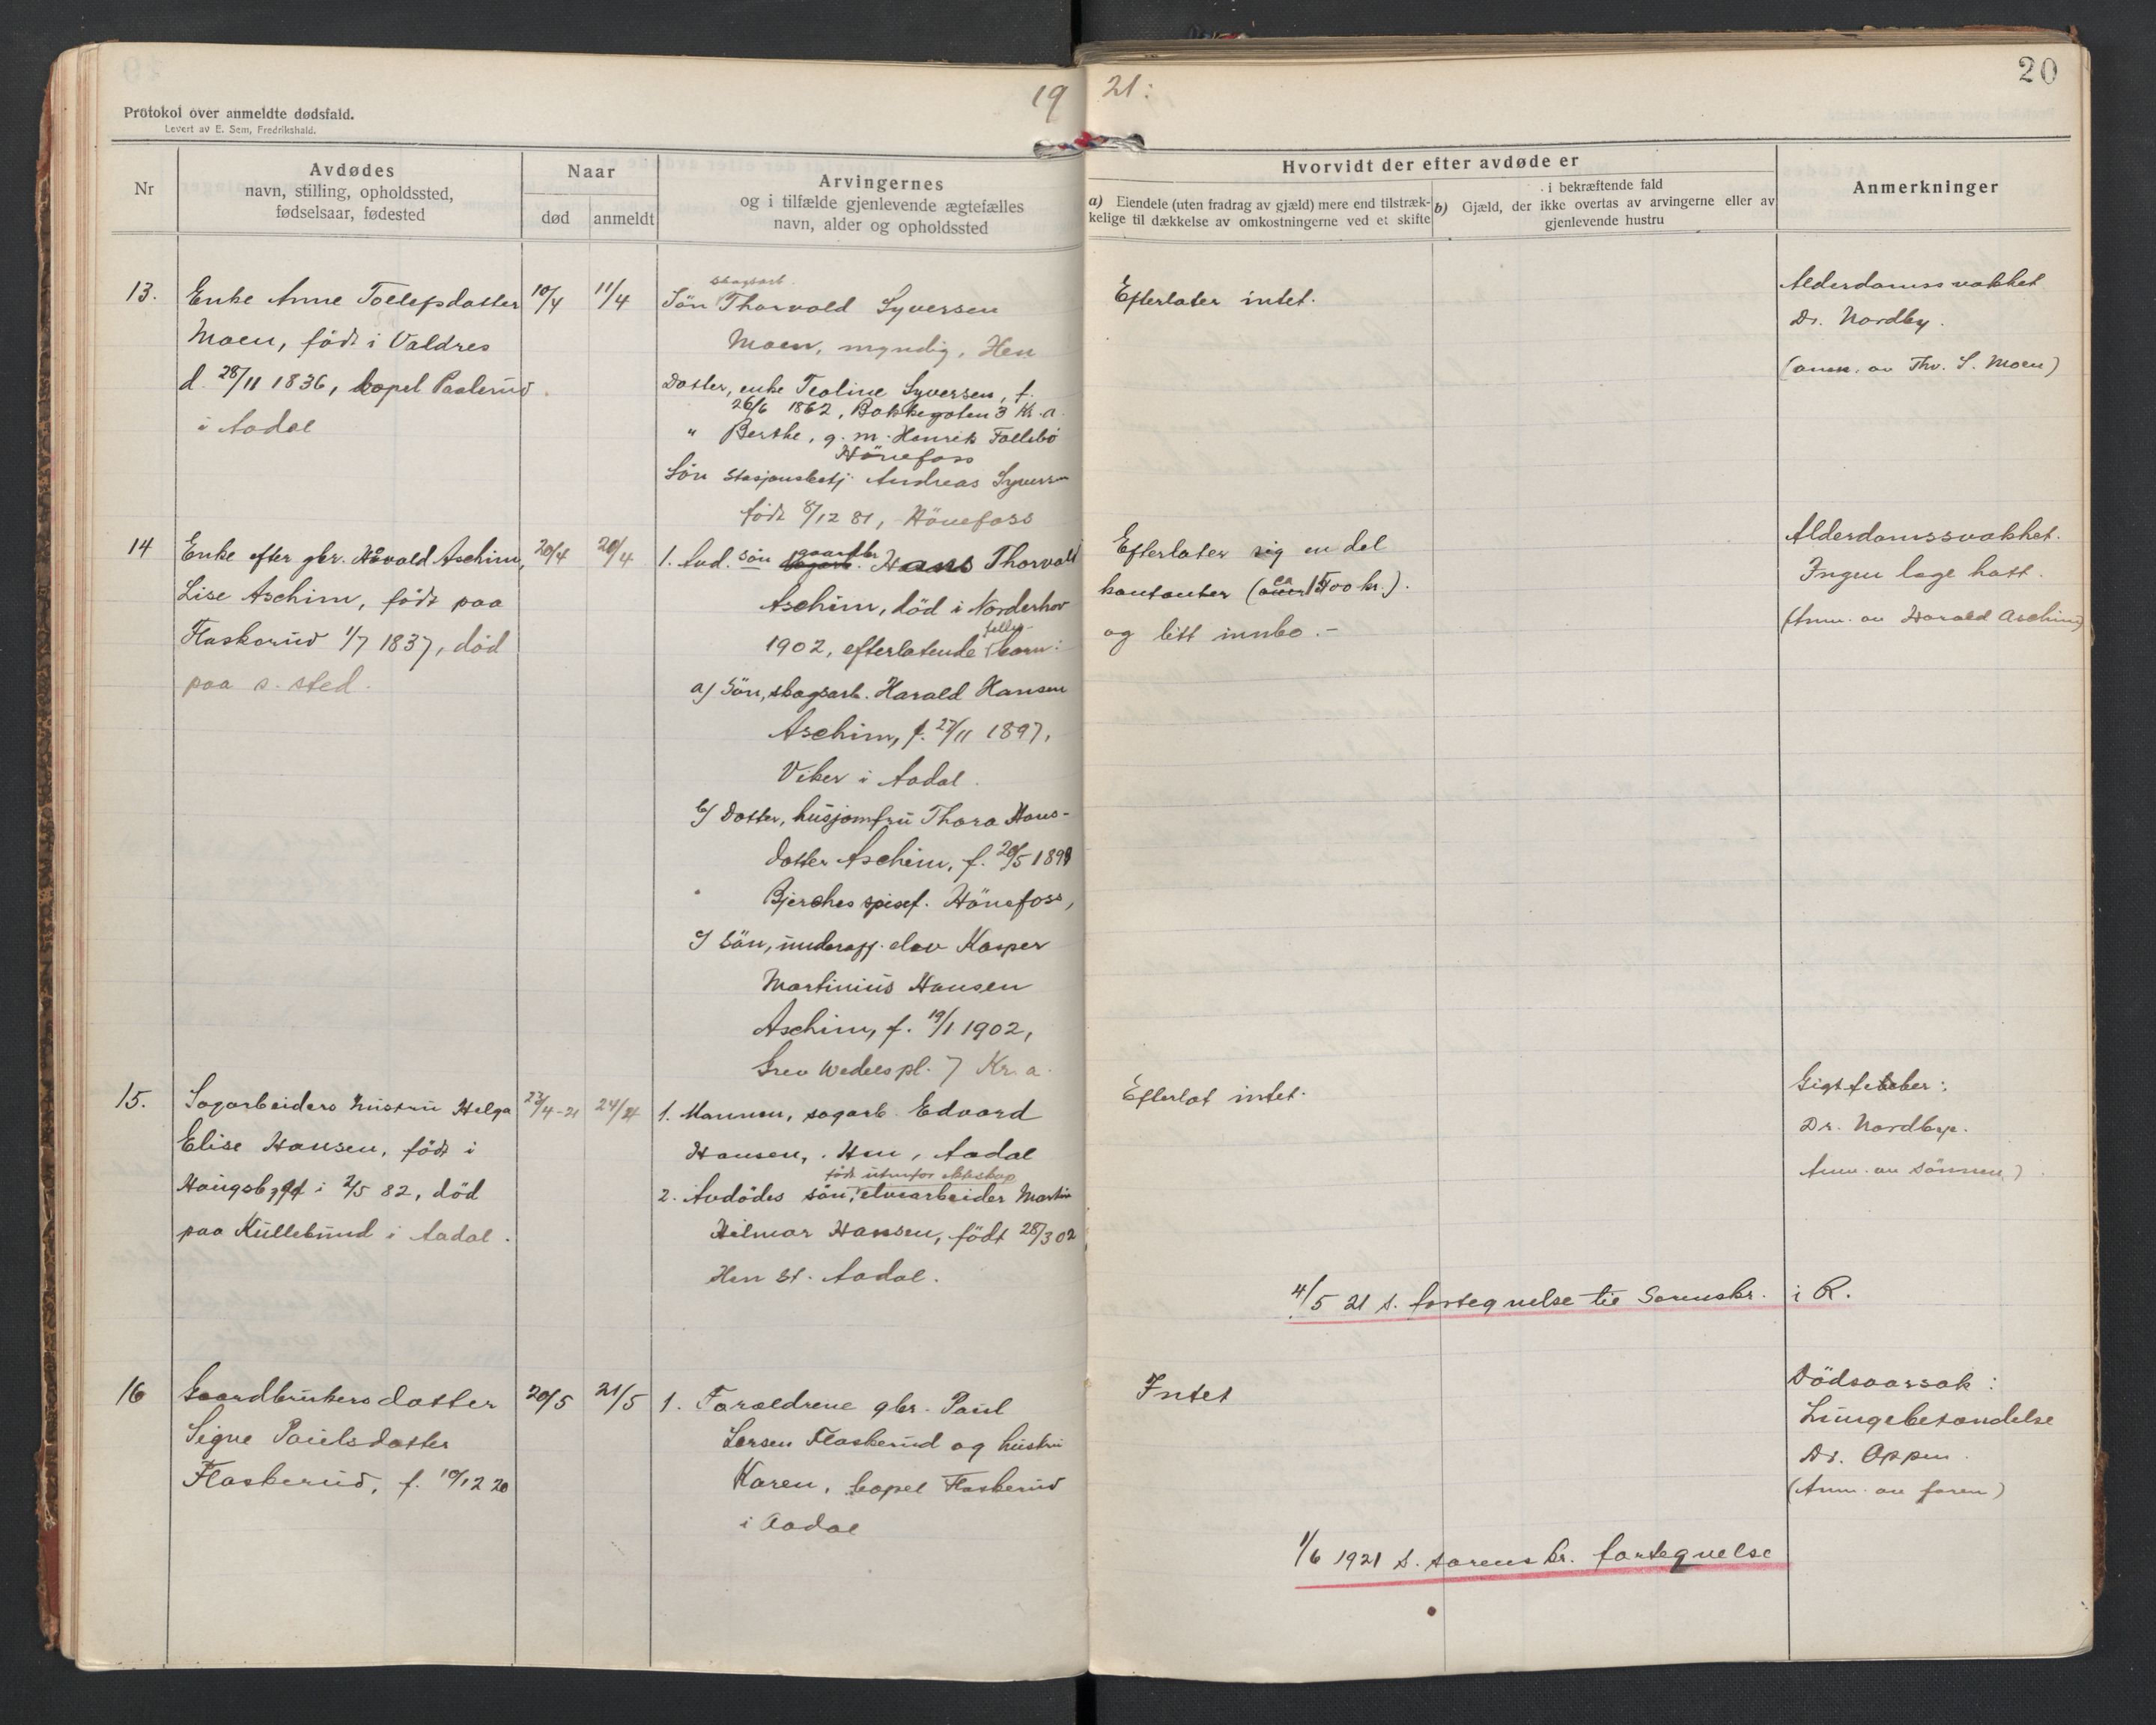 19 21:
20
Protokol over anmeldte dødsfald.
Levert av E. Sem, Fredrikshald.
Nr
Avdødes
navn, stilling, opholdssted,
fødselsaar, fødested
Naar
død
anmeldt
Arvingernes
og i tilfælde gjenlevende ægtefælles
navn, alder og opholdssted
Hvorvidt der efter avdøde er
a) Eiendele (uten fradrag av gjæld) mere end tilstræk-
kelige til dækkelse av omkostningerne ved et skifte
i bekræftende fald
b) Gjæld, der ikke overtas av arvingerne eller av
gjenlevende hustru
Anmerkninger
13.
Enke Anne Tollefsdatter
Moen, födt i Valdres
d. 28/11 1836, bopel Paalerud
i Aadal
10/4
11/4
skogsarb.
Sön Thorvald Syversen
Moen, myndig, Hen
Datter, enke Teoline Syversen, f.
26/6 1862, Bakkegaten 3 Kr.a.
" Berthe, g. m. Henrik Follebö
Hönefoss
Sön stasjonsbetj. Andreas Syversen
födt 8/12 81, Hönefoss
Efterlater intet.
Alderdomssvakhet
Dr. Nordby.
(anm. av Thv. S. Moen)
14
Enke efter gbr. Håvald Aschim,
Lise Aschim, födt paa
Flaskerud 1/7 1837, död
paa s. sted.
20/4
20/4
1. Avd. sön gaardbr. Hans Thorvald
Aschim, död i Norderhov
felles-
1902, efterlatende barn:
a) Sön, skogsarb. Harald Hansen
Aschim, f. 27/11 1897,
Viker i Aadal.
b) Datter, husjomfru Thora Hans-
datter Aschim, f. 20/5 1899
Bjerches spisef. Hönefoss,
c) Sön, underoff. elev Kasper
Martinius Hansen
Aschim, f. 19/1 1902,
Grev Wedels pl. 7 Kr.a.
Efterlater sig en del
kontanter (ca 1500 kr.).
og litt innbo.-
Alderdomssvakhet.
Ingen læge hatt.
(Anm. av Harald Aschim)
15.
Sagarbeiders hustru Helga
Elise Hansen, födt i
Haugsbygd i 2/5 82, död
paa Küllebund i Aadal.
23/4-21
24/4
1. Mannen, sagarb. Edvard
Hansen, Hen, Aadal
födt utenfor ekteskap
2. Avdödes sön, elvearbeider Martin
Hilmar Hansen, födt 28/3 02
Hen st. Aadal.
Efterlot intet.
Gigtfeber:
Dr. Nordby.
Anm. av sönnen)
4/5 21 s. fortegnelse til Sorenskr. i R.
16
Gaardbrukersdatter
Signe Paulsdatter
Flaskerud, f. 10/12 20
20/5
21/5
1. Foreldrene gbr. Paul
Larsen Flaskerud og hustru
Karen, bopel Flaskerud
i Aadal
Intet
Dödsaarsak:
Lungebetendelse
Dr. Oppen.
(Anm. av faren)
1/6 1921 s. sorenskr. fortegnelse